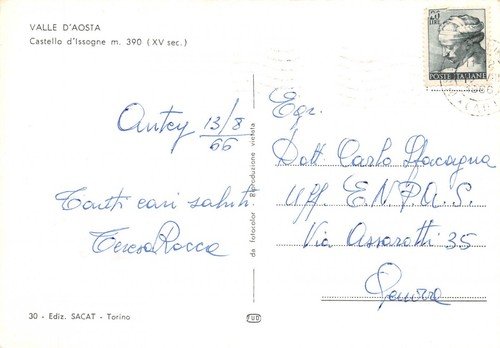 VALLE D'AOSTA
Castello d'Issogne m. 390 (XV sec.)
Antey 13/8
66
Tanti cari saluti
Teresa Rocca
30 - Ediz. SACAT - Torino
da fotocolor - Riproduzione vietata
POSTE ITALIANE
Egr.
Dott. Carlo Sfacagna
Uff. E.N.P.A.S.
Via Assarotti 35
Genova